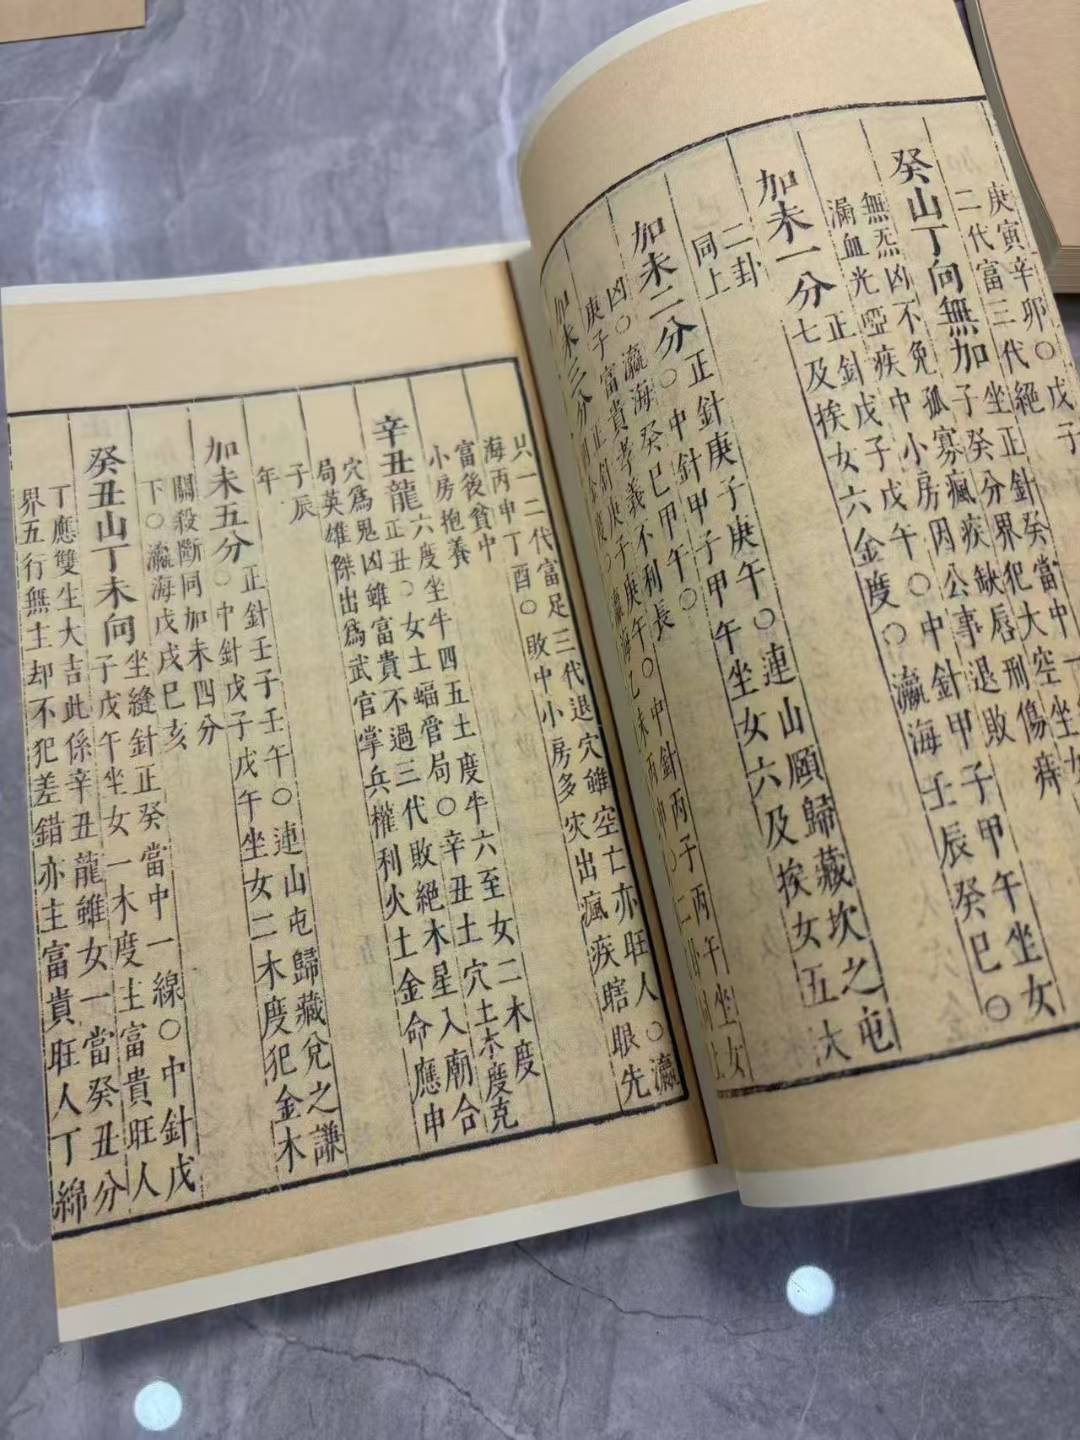 庚寅辛卯○戊子
二代富三代絕
癸山丁向無加
正針癸當中
子癸分界犯大空坐女
無炁凶不免孤寡瘋疾缺唇刑傷痔
漏血光啞疾中小房因公事退敗
加未一分
正針戊子戊午○中針甲子甲午坐女
七及挨女六金度○瀛海壬辰癸巳○
二卦
同上
加未二分
正針庚子庚午○連山頤歸藏坎之屯
○中針甲子甲午坐女六及挨女五大
凶○瀛海癸巳甲午○
庚子富貴孝義不利長
加未三分
正針庚子庚午○中針丙子丙午坐女
瀛海乙未丙申○二卦同上
只一二代富足三代退穴雖空亡亦旺人○瀛
海丙申丁酉○敗中小房多災出瘋疾瞎眼先
富後貧中
小房抱養
辛丑龍
六度坐牛四五土度牛六至女二木度
正丑○女土蝠管局○辛丑土穴土木度克
穴為鬼凶雖富貴不過三代敗絕木星入廟合
局英雄傑出為武官掌兵權利火土金命應申
子辰
年
加未五分
正針壬子壬午○連山屯歸藏兌之謙
○中針戊子戊午坐女二木度犯金木
關殺斷同加未四分
下○瀛海戊戌己亥
癸丑山丁未向
坐縫針正癸當中一線○中針戊
子戊午坐女一木度主富貴旺人
丁應雙生大吉此係辛丑龍雖女一當癸丑分
界五行無土却不犯差錯亦主富貴旺人丁綿